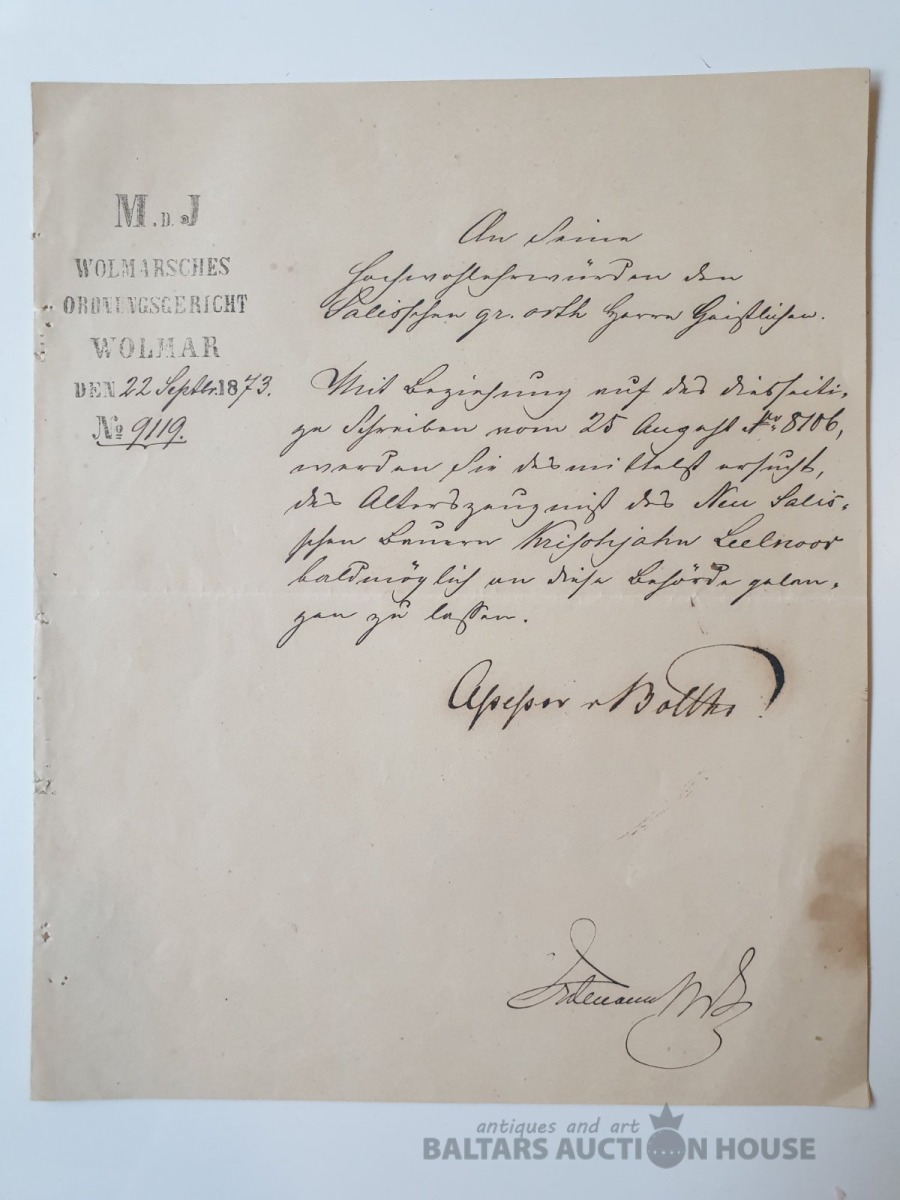 M. D. J
WOLMARSCHES
ORDNUNGSGERICHT
WOLMAR
DEN 22 Septbr. 1873.
No 9119.
An Seine
Hochwohlehrwürden den
Salisschen gr. orth Herrn Geistlichen.
Mit Beziehung auf das diesseiti-
ge Schreiben vom 25 August Nr. 8106,
werden Sie desmittelst ersucht,
das Alterszeugniß des Neu Salis-
schen Bauern Krischjahn Leelnoor
baldmöglich an diese Behörde gelan-
gen zu lassen.
Assessor v
antiques and art
BALTARS AUCTION HOUSE